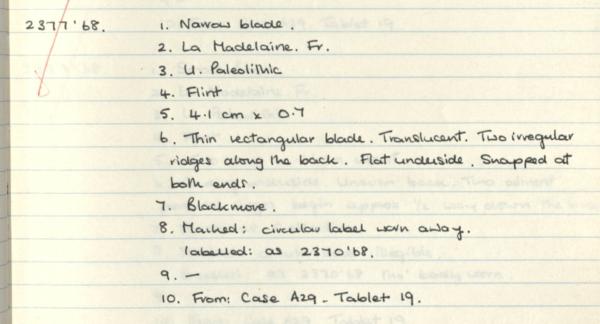 2377'68. 1. Narrow blade.
2. La Madelaine. Fr.
3. U. Paleolithic
4. Flint
5. 4.1 cm x 0.7
6. Thin rectangular blade. Translucent. Two irregular
ridges along the back. Flat underside. Snapped at
both ends.
7. Blackmore.
8. Marked: circular label worn away.
labelled: as 2370'68.
9. —
10. From: Case A29 - Tablet 19.